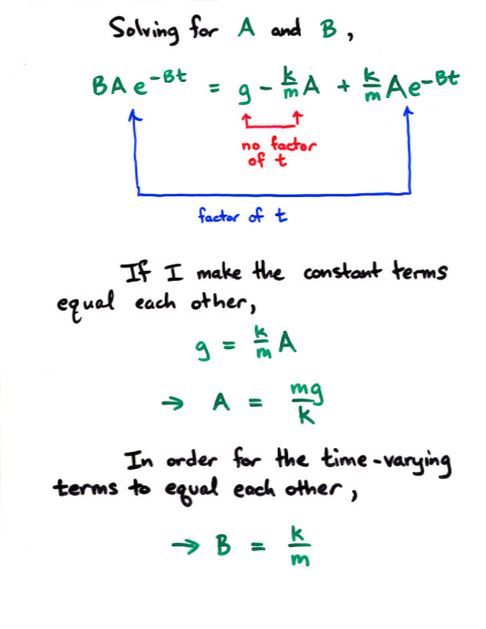 Solving for A and B,
BAe^{-Bt} = g - \frac{k}{m}A + \frac{k}{m}Ae^{-Bt}
no factor
of t
factor of t
If I make the constant terms
equal each other,
g = \frac{k}{m}A
→ A = \frac{mg}{k}
In order for the time-varying
terms to equal each other,
→ B = \frac{k}{m}